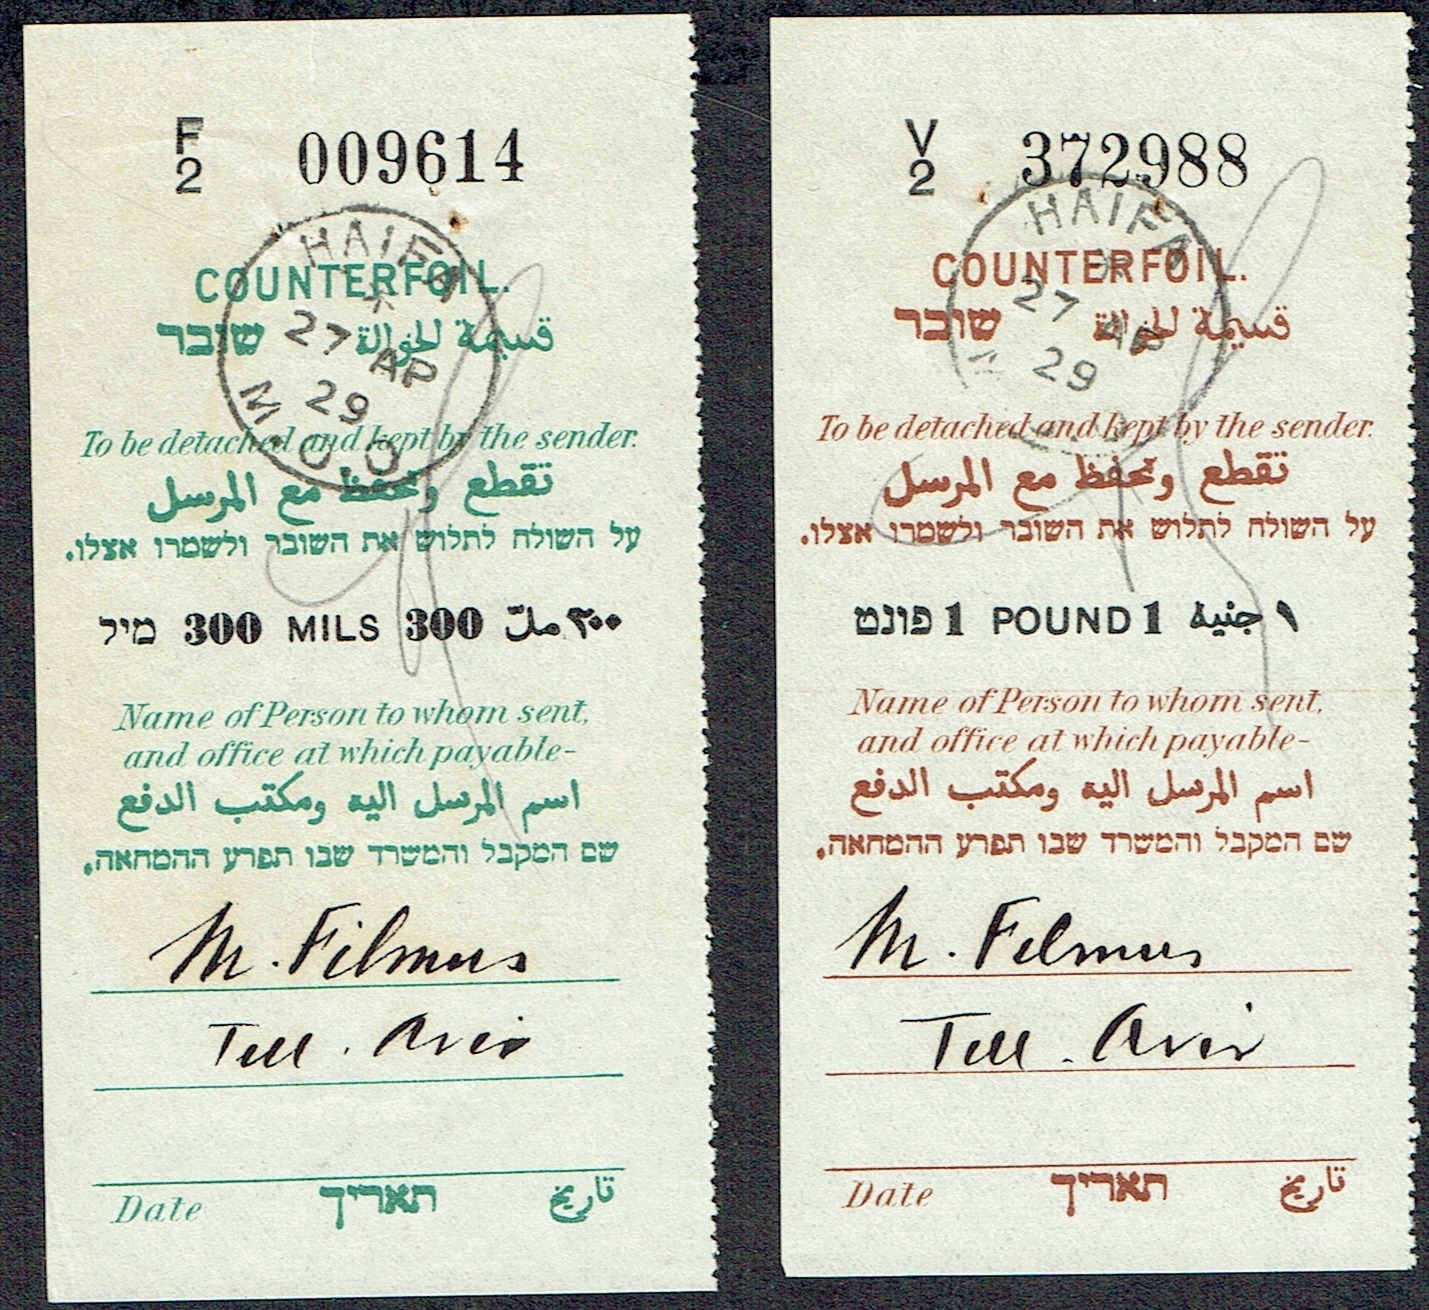 F
2 009614
HAIFA
COUNTERFOIL.
27 AP
29
M.O.O
שובר قسيمة للحوالة
To be detached and kept by the sender.
تقطع وتحفظ مع المرسل
על השולח לתלוש את השובר ולשמרו אצלו.
מיל 300 MILS 300 ٣٠٠ ملّ
Name of Person to whom sent,
and office at which payable-
اسم المرسل اليه ومكتب الدفع
שם המקבל והמשרד שבו תפרע ההמחאה.
M. Filmus
Tell. Aviv
Date תאריך تاريخ
V
2 372988
HAIFA
COUNTERFOIL.
27 AP
29
שובר قسيمة للحوالة
To be detached and kept by the sender.
تقطع وتحفظ مع المرسل
על השולח לתלוש את השובר ולשמרו אצלו.
פונט 1 POUND 1 ١ جنيه
Name of Person to whom sent,
and office at which payable-
اسم المرسل اليه ومكتب الدفع
שם המקבל והמשרד שבו תפרע ההמחאה.
M. Filmus
Tell. Aviv
Date תאריך تاريخ